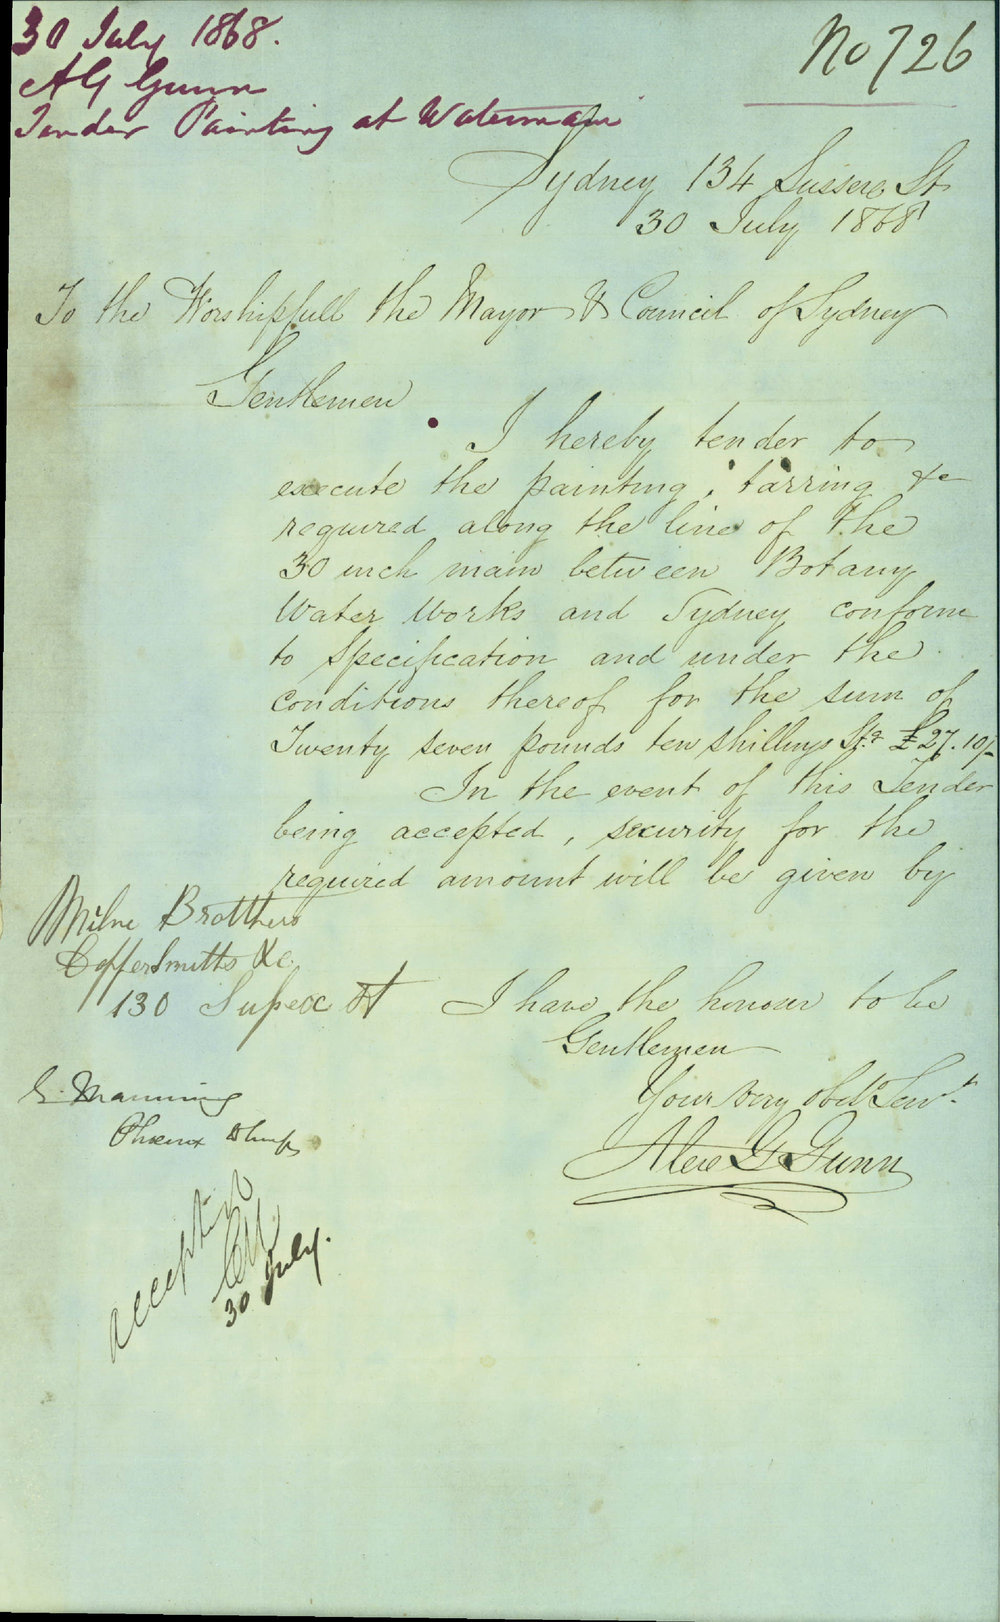 30 July 1868.
A G Gunn
Tender Painting at Watermain
No 726
Sydney 134 Sussex St
30 July 1868
To the Worshipfull the Mayor & Council of Sydney
Gentlemen
I hereby tender to
execute the painting, tarring &c
required along the line of the
30 inch main between Botany
Water Works and Sydney conform
to Specification and under the
conditions thereof for the sum of
Twenty seven pounds ten shillings Stg £27.10/-
In the event of this Tender
being accepted, security for the
required amount will be given by
Milne Brothers
Coppersmiths &c.
130 Sussex St
I have the honour to be
Gentlemen
Your very obdt Servt.
Alex G Gunn
Manning
Phoenix Wharf
accepted
30 July.